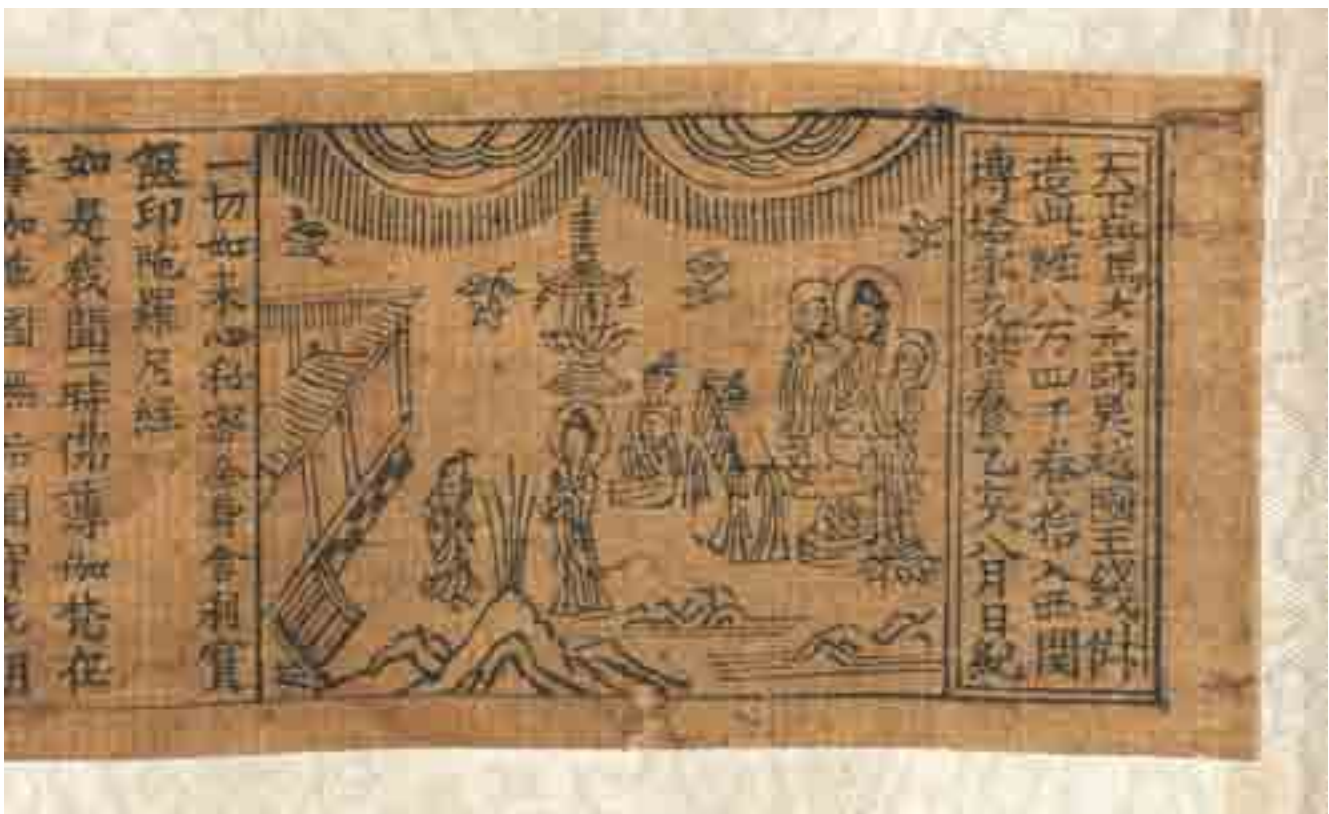 天下兵馬大元帥吳越國王錢俶
造此經八万四千卷捨入西関
塼塔永充供養乙亥八月日紀
一切如来心秘密全身舍利寳
篋印陁羅尼經
如是我聞一時佛薄伽梵在